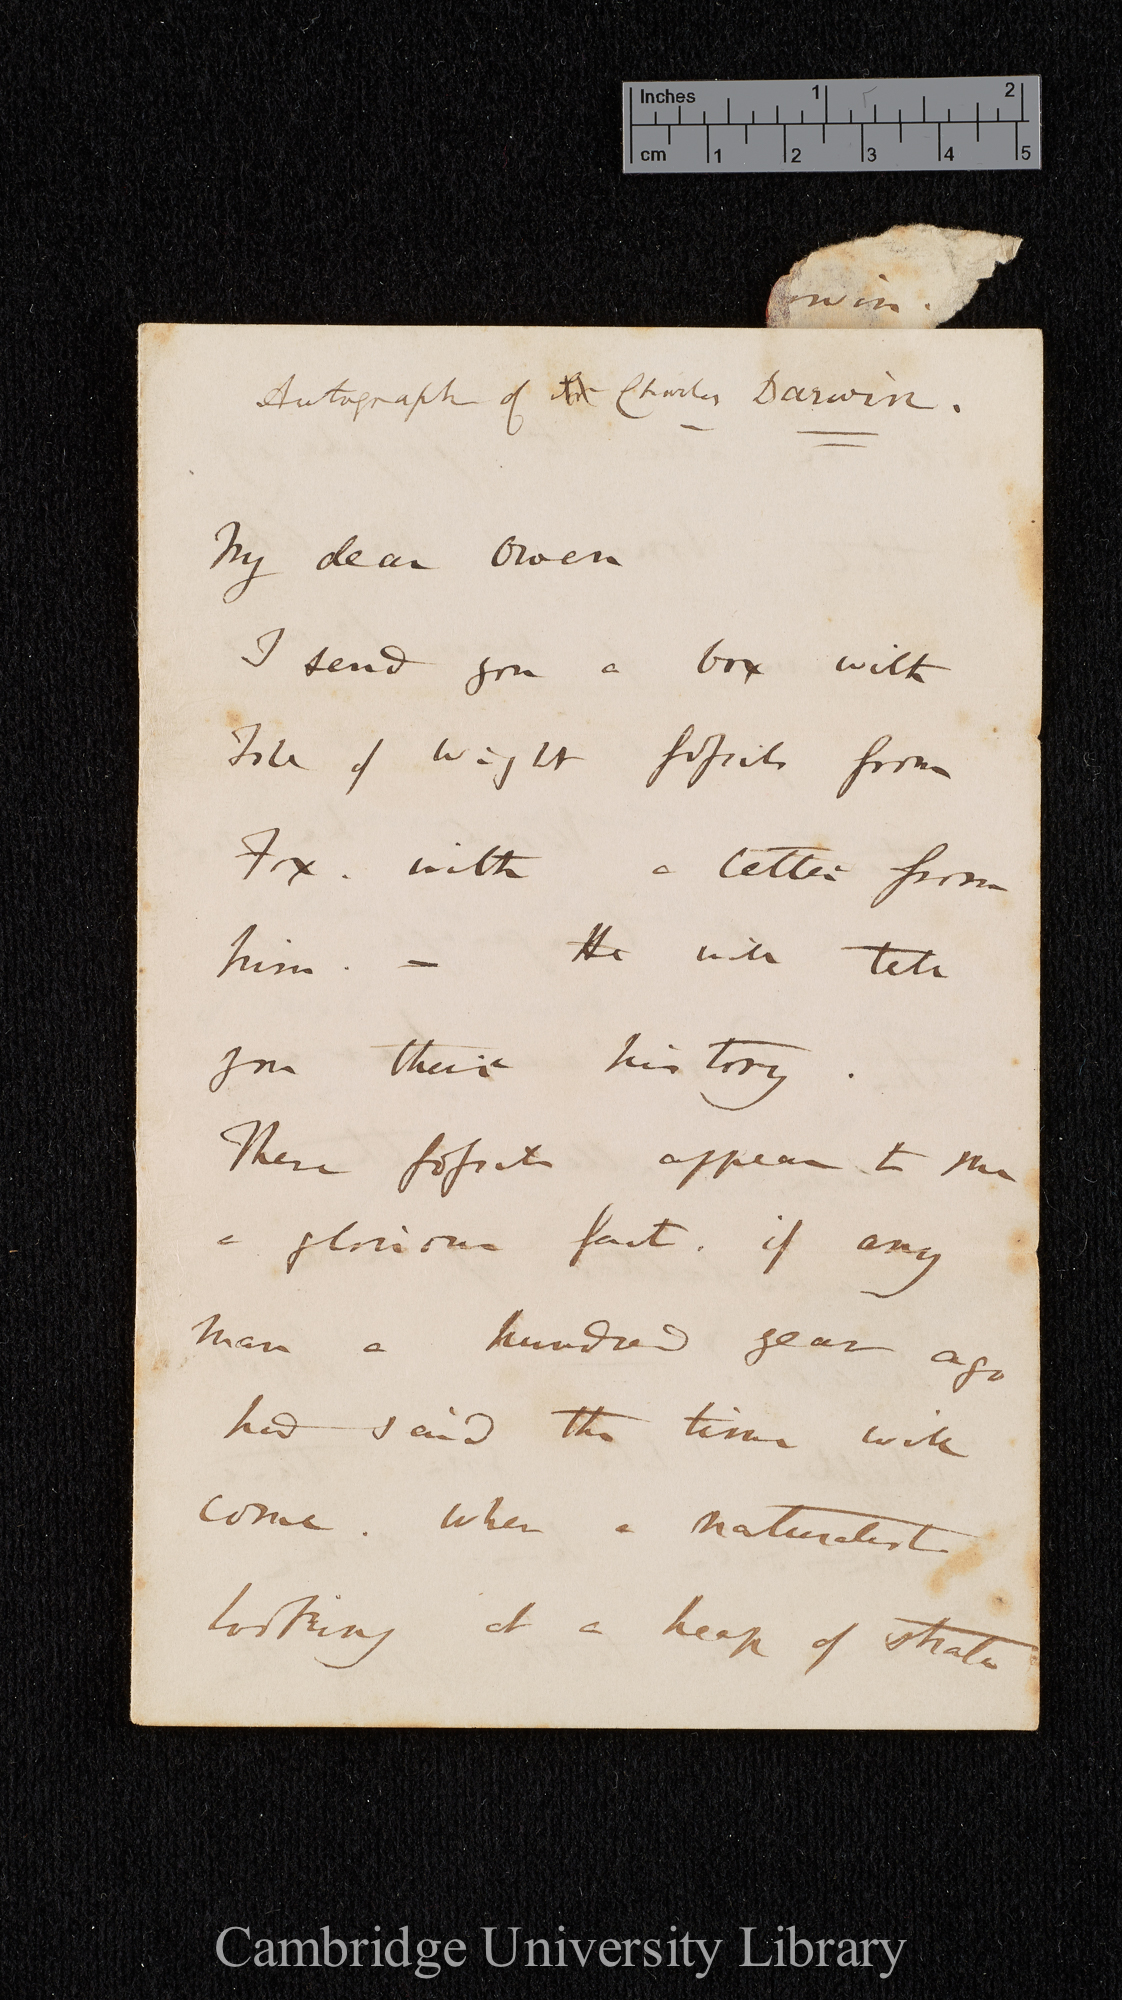 Inches 1 2
cm 1 2 3 4 5
rwin.
Autograph of Charles Darwin.
My dear Owen
I send you a box with
Isle of Wight fossils from
Fox. with a letter from
him. — He will tell
you their history.
These fossils appear to me
a glorious fact. if any
man a hundred year ago
had said the time will
come. when a naturalist
looking at a heap of strata
Cambridge University Library